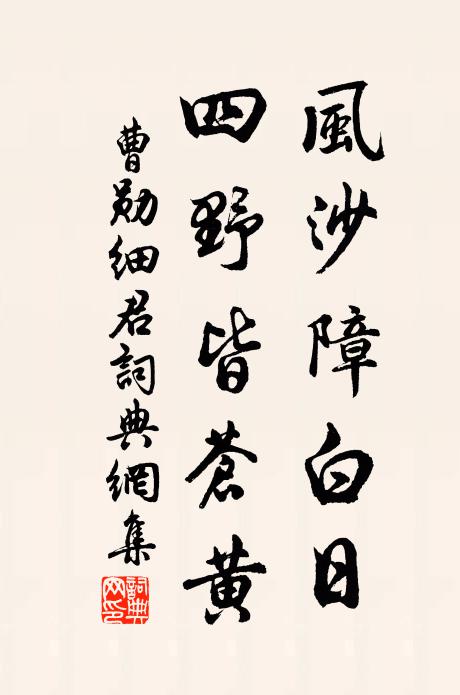 風沙障白日
四野皆蒼黃
曹勛細君詞典網集
詞典網印